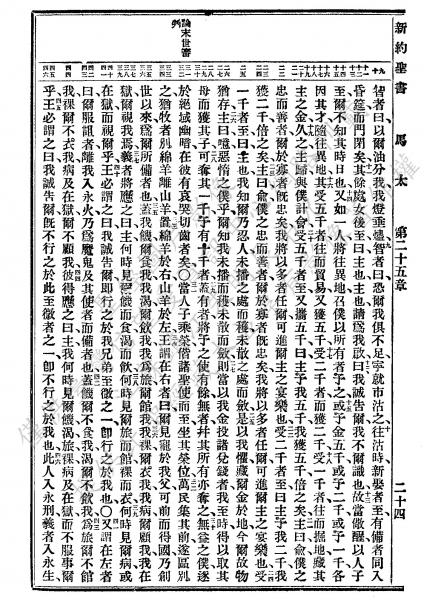 新約聖書 馬太 第二十五章 二十四
智者曰以爾油分我我燈垂熄智者曰恐爾我俱不足寧就市沽之往沽時新娶者至有備者同入
昏筵而門閉矣其餘處女後至曰主也主也請爲我啟曰我誠告爾我不爾識也故當儆醒以人子
至爾不知其時日也又如一人將往異地召僕以所有者予之或予金五千或予二千或予一千各
因其才隨往異地其受五千者往而貿易又獲五千受二千者而獲二千受一千者往而掘地藏其
主之金久之主歸與僕計會受五千者至又攜五千曰主予我五千我獲五千倍之矣主曰俞僕之
忠而善者於寡者旣忠矣我將以多者任爾可進爾主之宴樂也受二千者至曰主予我二千我
獲二千倍之矣其主曰俞僕之忠而善者爾於寡者旣忠矣我將以多者任爾可進爾主之宴樂也受
一千者至曰主也我知爾乃忍人未播之處而穫未散之處而斂是以我懼藏爾金於地今爾故物
猶存主曰噫惡惰僕乎爾知我未播而穫未散而斂則當以我金投諸兌錢者我至時得以取其
母而獲其子可奪其一千予有十千者蓋有者將予之使有餘無者幷其所有亦奪之無益之僕逐
於絕域幽暗在彼有哀哭切齒者矣〇當人子乘榮偕諸聖使而至坐其榮位萬民集其前遂區別
之猶牧者別綿羊離山羊置綿羊於右山羊於左王謂在右者曰爾見寵於我父可前而得國乃創
世以來爲爾所備者也蓋我饑爾食我我渴爾飲我我爲旅爾館我我裸爾衣我我病爾顧我我在
獄爾視我焉義者將應之曰主何時見爾饑而食渴而飲何時見爾旅而館裸而衣何時見爾病或
在獄而視爾乎王必謂之曰我誠告爾旣行之於我兄弟至微之一卽行之於我也〇又謂在左者
曰爾服詛者離我入永火乃爲魔鬼及其使者而備者也蓋我饑爾不食我渴爾不飲我爲旅爾不館
我裸爾不衣我病及在獄爾不顧我彼將應之曰主我何時見爾饑渴旅裸病及在獄而不服事爾
乎王必謂之曰我誠告爾旣不行之於此至微者之一卽不行之於我也此人入永刑義者入永生
論末世審判